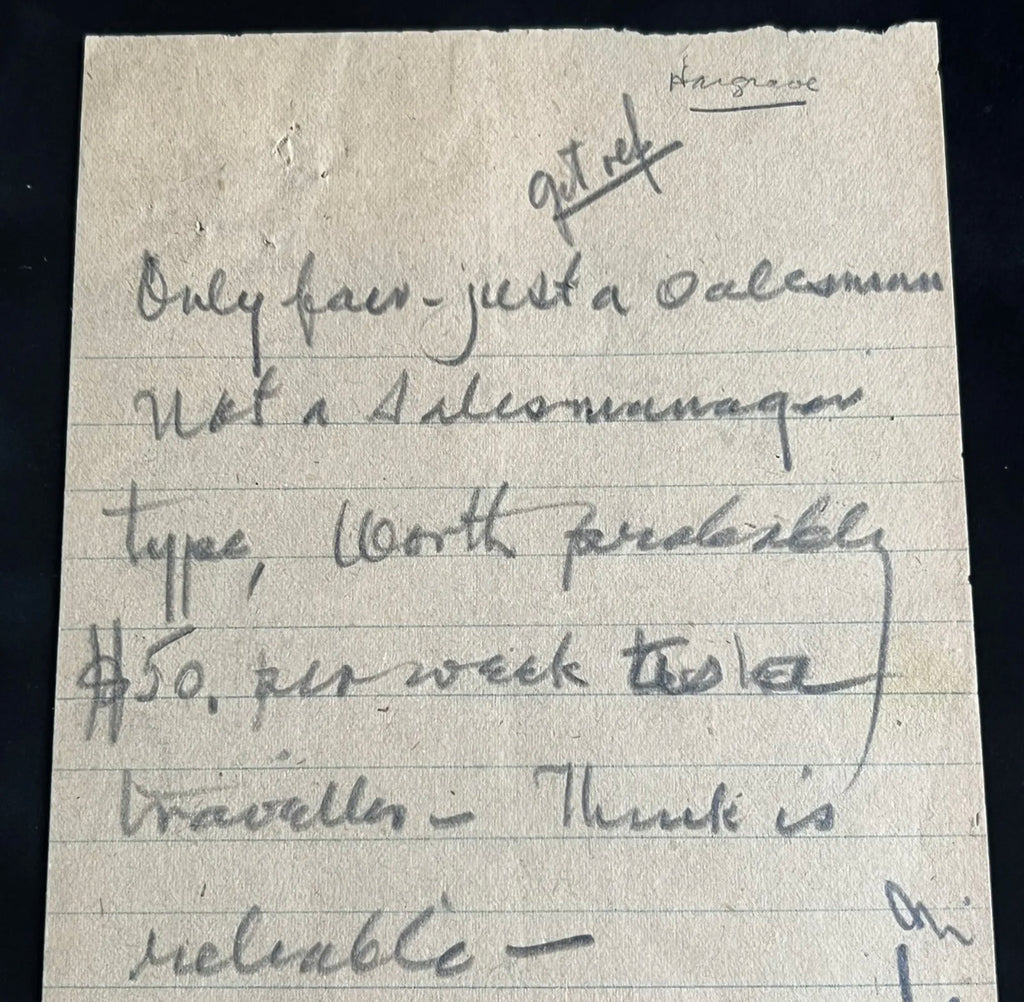 Hargrave
get ref
Only fair - just a salesman
Not a salesmanager
type, Worth probably
$50. per week as a
traveller - Think is
reliable -